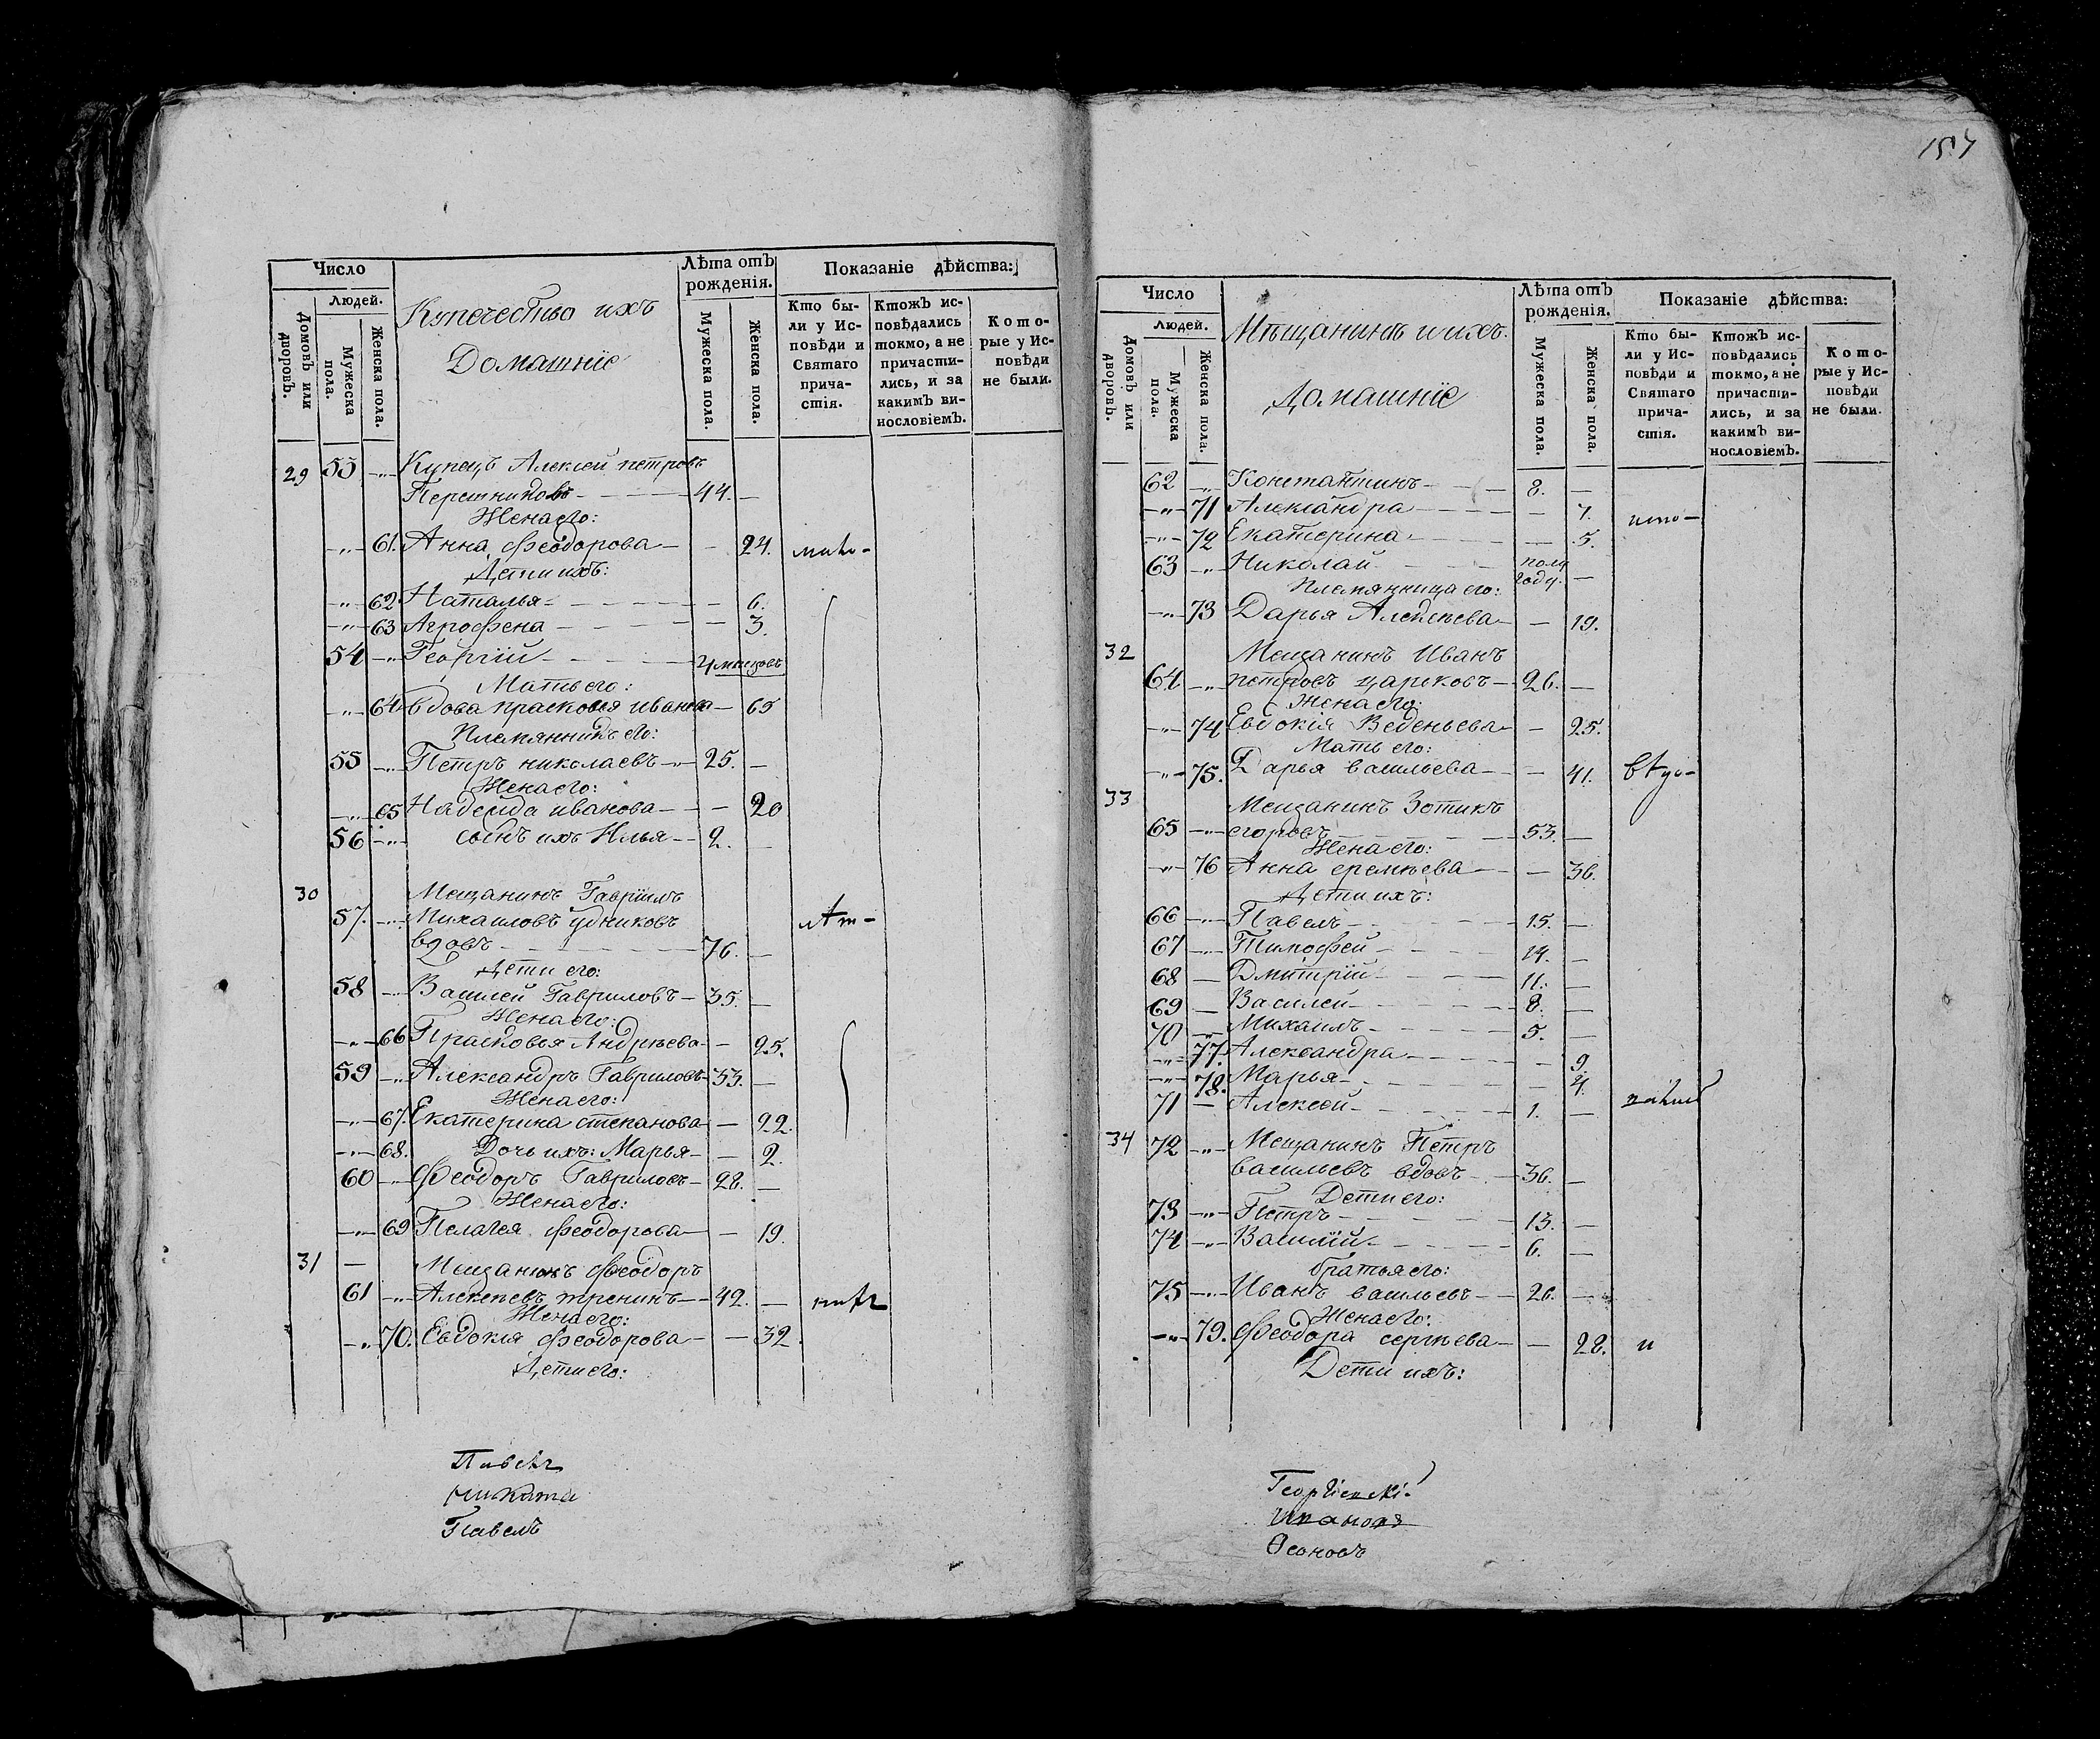 Число
Людей.
Домовъ или дворовъ.
Мужеска пола.
Женска пола.
Купечество ихъ
Домашніе
Лѣта отъ рожденія.
Мужеска пола.
Женска пола.
Показаніе дѣйства:
Кто бы-
ли у Ис-
повѣди и
Святаго
прича-
стія.
Ктожъ ис-
повѣдались
токмо, а не
причасти-
лись, и за
какимъ ви-
нословіемъ.
Кото-
рые у Ис-
повѣди
не были.
29 53 -"- Купецъ Алексей петровъ
44. -
Жена его:
-"- 61. Анна Феодорова - - 24.
Дети ихъ:
-"- 62 Наталья - - 6.
-"- 63 Агрофена - - 3.
54 -"- Георгій - 4 месяцовъ
Мать его:
-"- 64 вдова прасковья иванова - 65
Племянникъ его:
55 -"- Петръ николаевъ -"- 25. -
Жена его:
-"- 65 Надежда иванова - - 20
56 -"- сынъ ихъ Илья - 2. -
30 Мещанинъ Гавріилъ
57. -"- Михаиловъ
вдовъ - 76. -
Дети его:
58 -"- Василей Гавриловъ - 35. -
Жена его:
-"- 66 Прасковья Андрѣева - - 25.
59 -"- Александръ Гавриловъ - 33. -
Жена его:
-"- 67. Екатерина степанова - 22.
-"- 68. Дочь ихъ: Марья - - 2.
60 -"- Феодоръ Гавриловъ - 28. -
Жена его:
-"- 69 Пелагея Феодорова - - 19.
31 - Мещанинъ Феодоръ
61 -"- Алексѣевъ тренинъ - 42. -
Жена его:
-"- 70. Евдокия Феодорова - - 32.
Дети его:
Никита
Павелъ
157
Число
Людей.
Домовъ или дворовъ.
Мужеска пола.
Женска пола.
Мѣщанинъ и ихъ.
Домашніе
Лѣта отъ рожденія.
Мужеска пола.
Женска пола.
Показаніе дѣйства:
Кто бы-
ли у Ис-
повѣди и
Святаго
прича-
стія.
Ктожъ ис-
повѣдались
токмо, а не
причасти-
лись, и за
какимъ ви-
нословіемъ.
Кото-
рые у Ис-
повѣди
не были.
62 -"- Константинъ - 8. -
-"- 71 Александра - - 7.
-"- 72 Екатерина - - 5.
63 -"- Николай - полу
году. -
Племянница его:
-"- 73 Дарья Алексѣева - - 19.
32 Мещанинъ Иванъ
64 -"- петровъ царковъ - 26. -
Жена его:
-"- 74 Евдокія Веденьева - - 25.
Мать его:
-"- 75. Дарья васильева - - 41.
33 Мещанинъ Зотикъ
65 -"- егоровъ - 53. -
Жена его:
-"- 76 Анна еремѣева - - 36.
Дети ихъ:
66 -"- Павелъ - 15. -
67 -"- Тимофей - 14. -
68 - Дмитрій - 11. -
69 - Василей - 8. -
70 -"- Михаилъ - 5. -
-"- 77. Александра - - 9.
-"- 78. Марья - - 4.
71 - Алексей - 1. -
34 72 -"- Мещанинъ Петръ
васильевъ вдовъ - 36. -
Дети его:
73 -"- Петръ - 13. -
74 -"- Василій - 6. -
братья его:
75 -"- Иванъ васильевъ - 26. -
Жена его:
-"- 79. Феодора сергѣева - - 28. и
Дети ихъ: